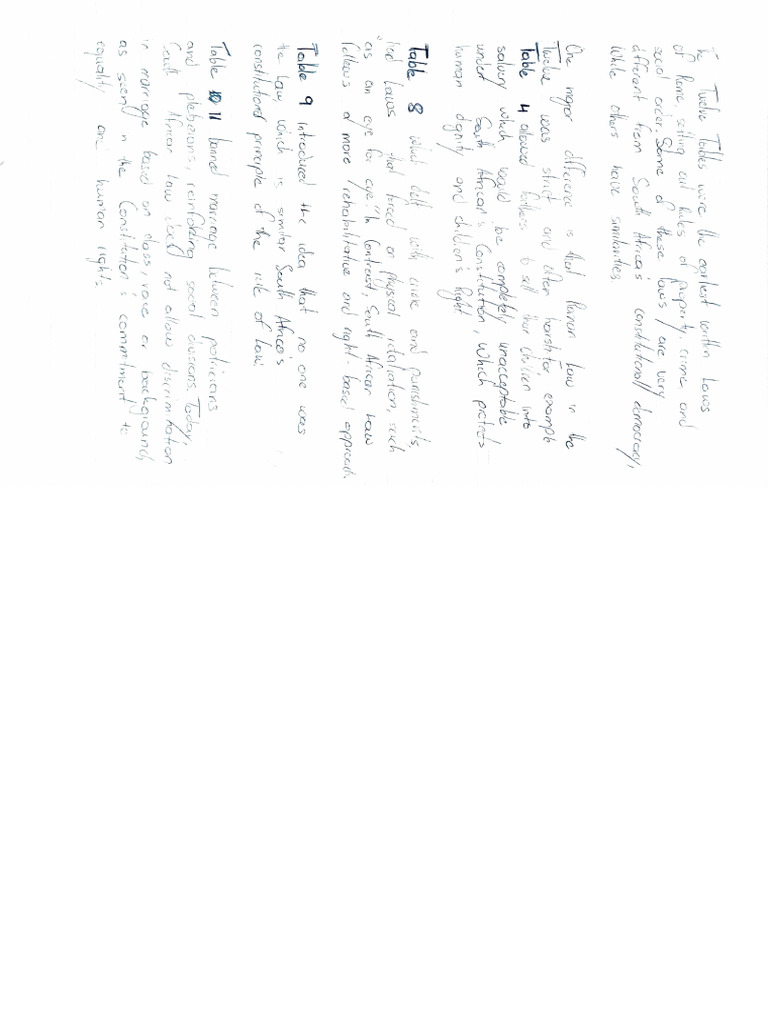 The Twelve Tables were the earliest written laws
of Rome, setting out rules of property, crime and
social order. Some of these laws are very
different from South Africa's constitutionall democracy,
While others have similarities.
One major difference is that Roman law in the
Twelve was strict and often harsh for example
Table 4 allowed fathers to sell their children into
salvery which would be completely unacceptable
under South African's Constitution, which protects
human dignity and children's right
Table 8 which delt with crime and punishments,
had laws that forced on physical retaliation, such
as "an eye for eye". In Contrast, South African law
follows a more rehabilitative and right-based approach.
Table 9 introduced the idea that no one was
the law, which is similar South Africa's
constitutional principle of the rule of law.
Table 11 banned marriage between patricians
and plebeians, reinforcing social divisions. Today,
South African law does not allow discrimination
in marriage based on class, race or background,
as seen in the Constitution's commitment to
equality and human rights.